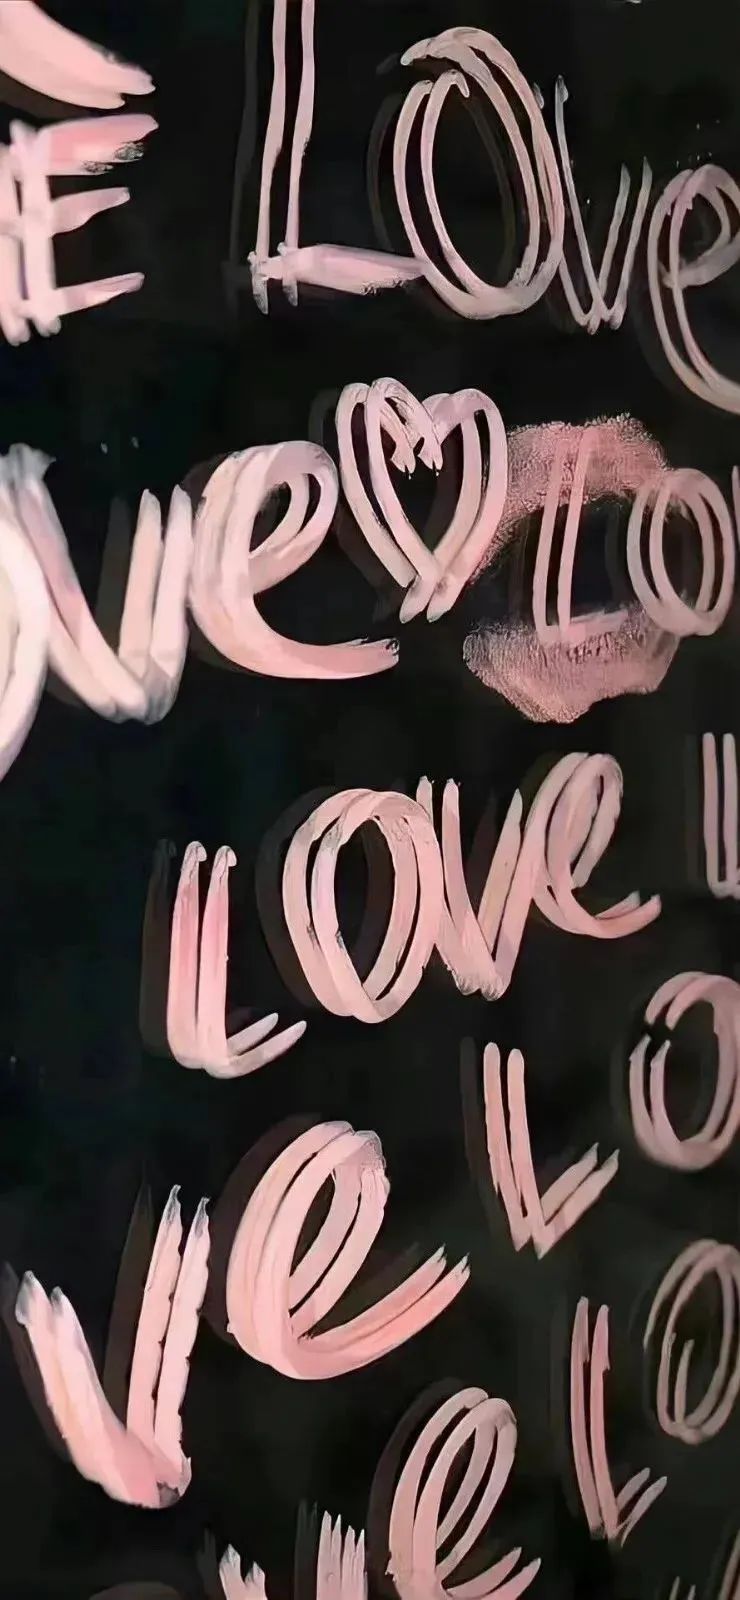 E Love
ove Lo
Love L
Lo
ve
Lo
ve